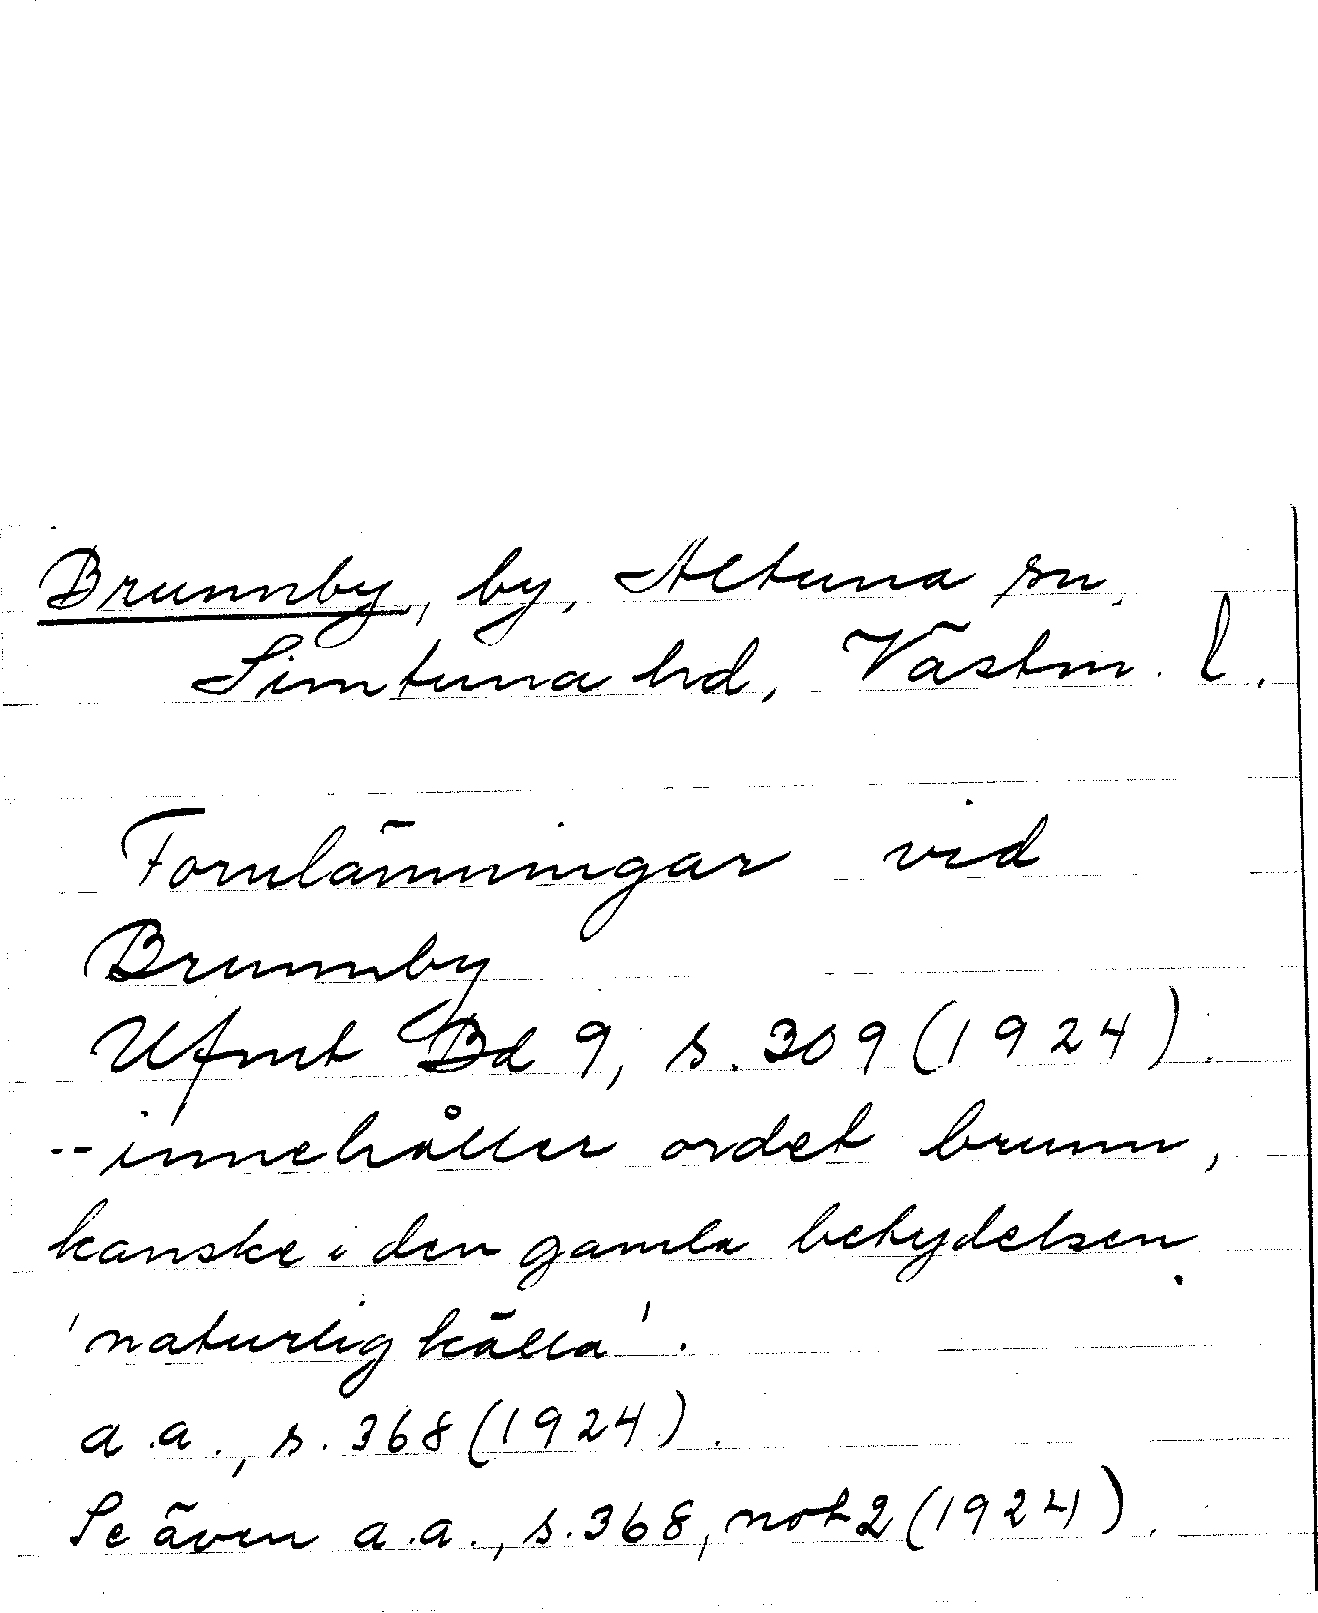 Brunnby, by, Altuna sn,
Simtuna hd, Västm. l.
Fornlämningar vid
Brunnby
Ufmt Bd 9, s. 309 (1924).
-- innehåller ordet brunn,
kanske i den gamla betydelsen
'naturlig källa'.
a.a., s. 368 (1924).
Se även a.a., s. 368, not 2 (1924).